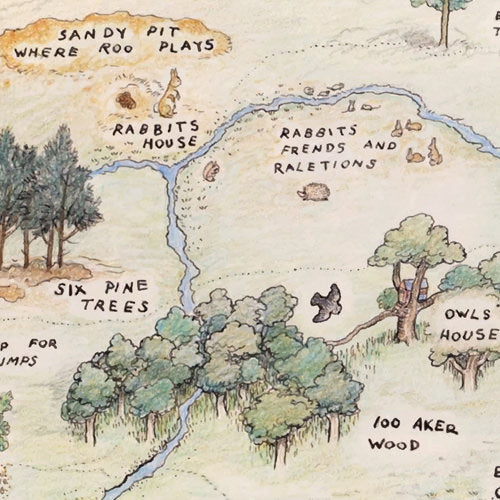 SANDY PIT
WHERE ROO PLAYS
RABBITS
HOUSE
RABBITS
FRENDS AND
RALETIONS
SIX PINE
TREES
FOR
OWLS
HOUSE
100 AKER
WOOD